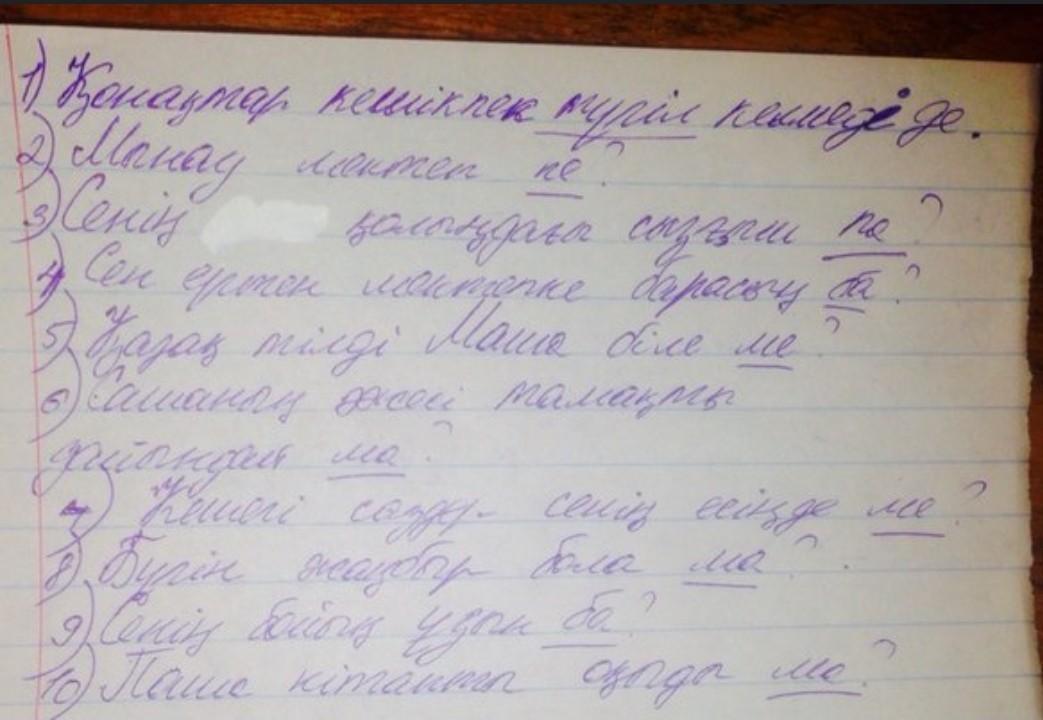 1) Қонақтар кешікпек түгіл келмеді де.
2) Мынау мектеп пе?
3) Сенің қолыңдағы сызғыш па?
4) Сен ертең мектепке барасың ба?
5) Қазақ тілді Маша біле ме?
6) Сашаның әжесі тамақты
дайындай ма?
7) Кешегі сөздер сенің есіңде ме?
8) Бүгін жаңбыр бола ма?
9) Сенің бойың ұзын ба?
10) Паша кітапты оқыды ма?